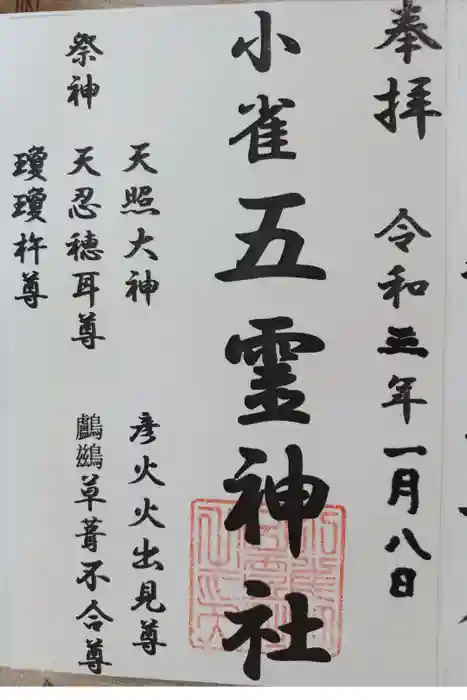 奉拝 令和三年一月八日
小雀五霊神社
天照大神
彦火火出見尊
祭神 天忍穂耳尊
鸕鶿草葺不合尊
瓊瓊杵尊